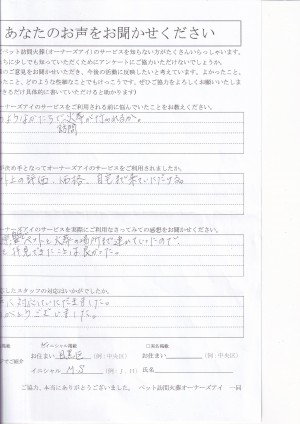 あなたのお声をお聞かせください
ペット訪問火葬(オーナーズアイ)のサービスを知らない方がたくさんいらっしゃいます。
ちに少しでも知っていただくためにアンケートにご協力いただけないでしょうか。
のご意見をお聞かせいただき、今後の活動に反映したいと考えています。よかったこと、
たこと、どのような些細なことでもけっこうです。ぜひご協力をよろしくお願いいたしま
きるだけ具体的に書いていただけると助かります)
ーナーズアイのサービスをご利用される前に悩んでいたことをお教えください。
のようなかたちで火葬が行のれるか。
訪問
手としてオーナーズアイのサービスをご利用されましたか。
上の評価、価格、自宅まで来ていただける。
ナーズアイのサービスを実際にご利用なさってみての感想をお聞かせください。
ペットと火葬の場所まで連れていけたので、
見できたことは良かった。
したスタッフの対応はいかがでしたか。
に対応していただきました。
ございました。
掲載
イニシャル掲載
□実名掲載
お住まい 目黒区 (例:中央区)
お住まい (例:中央区)
イニシャル M.S (例:J.H)
氏名
ご協力、本当にありがとうございました。 ペット訪問火葬オーナーズアイ 一同